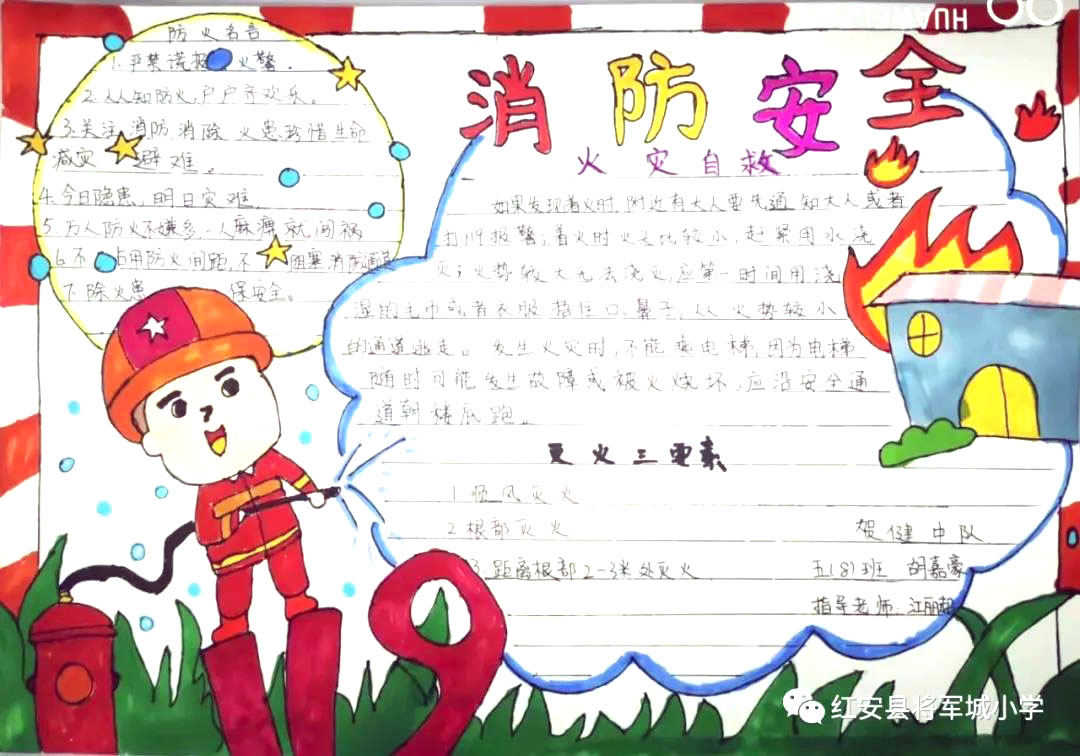 HUAWEI
消防安全
防火名言
1.严禁谎报火警。
2.人人知防火,户户齐欢乐。
3.关注消防,消除火患珍惜生命
减灾避难。
4.今日隐患,明日灾难。
5.万人防火不嫌多,一人麻痹就闯祸
6.不占用防火间距,不阻塞消防通道
7.除火患 保安全。
火灾自救
如果发现着火时,附近有大人要先通知大人或者
打119报警;着火时火头比较小,赶紧用水浇
火;火势较大 去浇火,应第一时间用浇
湿的毛巾或者衣服捂住口、鼻子,从火势较小
的通道逃走。发生火灾时,不能乘电梯,因为电梯
随时可能发生故障或被火烧坏,应沿安全通
道朝楼底跑。
灭火三要素
1.顺风灭火
2.根部灭火
3.距离根部2-3米处灭火
贺健中队
五(8)班 胡嘉豪
指导老师:江丽超
119
红安县将军城小学